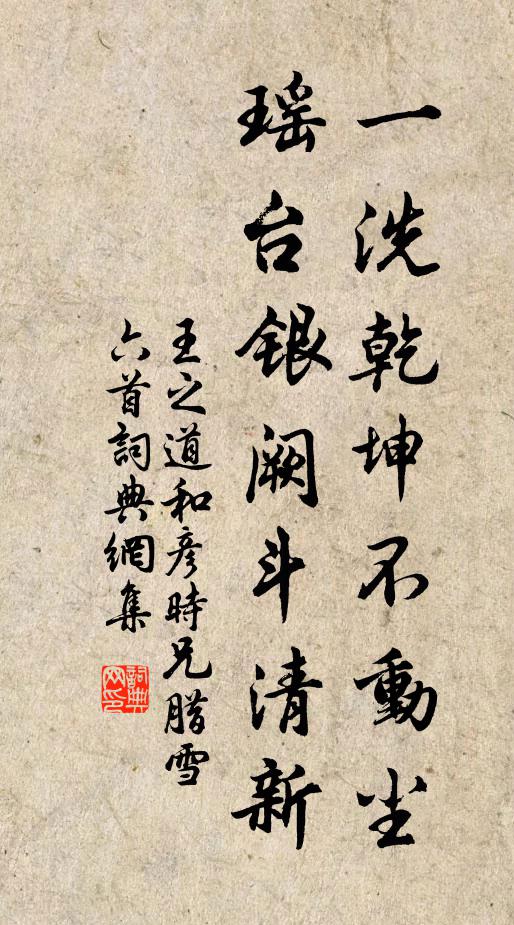 一洗乾坤不動尘
瑶台銀阙斗清新
王之道和彦時兄腊雪
六首詞典網集
詞典
网印